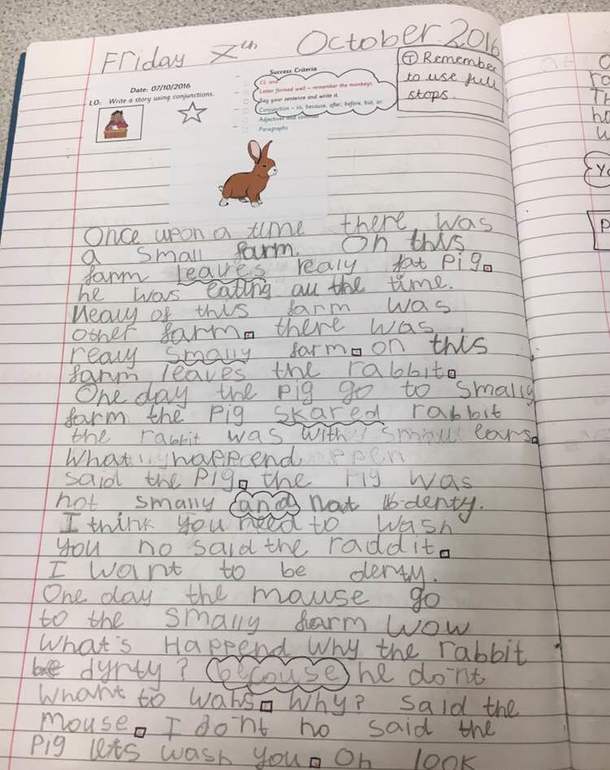 Friday 7th October 2016
Date: 07/10/2016
L.O. Write a story using conjunctions.
Success Criteria
CL and
Letter formed well – remember the monkeys
Say your sentence and write it.
Conjunction – so, because, after, before, but, or
Adjectives and
Paragraphs
T Remember
to use full
stops.
Once upon a time there was
a small farm. On this
farm leaves realy fat Pig.
he was eating all the time.
Nealy of this farm was
other farm. there was
realy smally farm. on this
farm leaves the rabbit.
One day the pig go to smally
farm the pig skared rabbit
the rabbit was with small ears.
What happend
said the Pig. the Pig was
not smally and nat denty.
I think you need to wash
you no said the raddit.
I want to be denty.
One day the mause go
to the smally farm wow
What's Happend why the rabbit
be dynty? becouse he don't
whant to wahs. Why? said the
mouse. I don't no said the
Pig lets wash you. Oh look